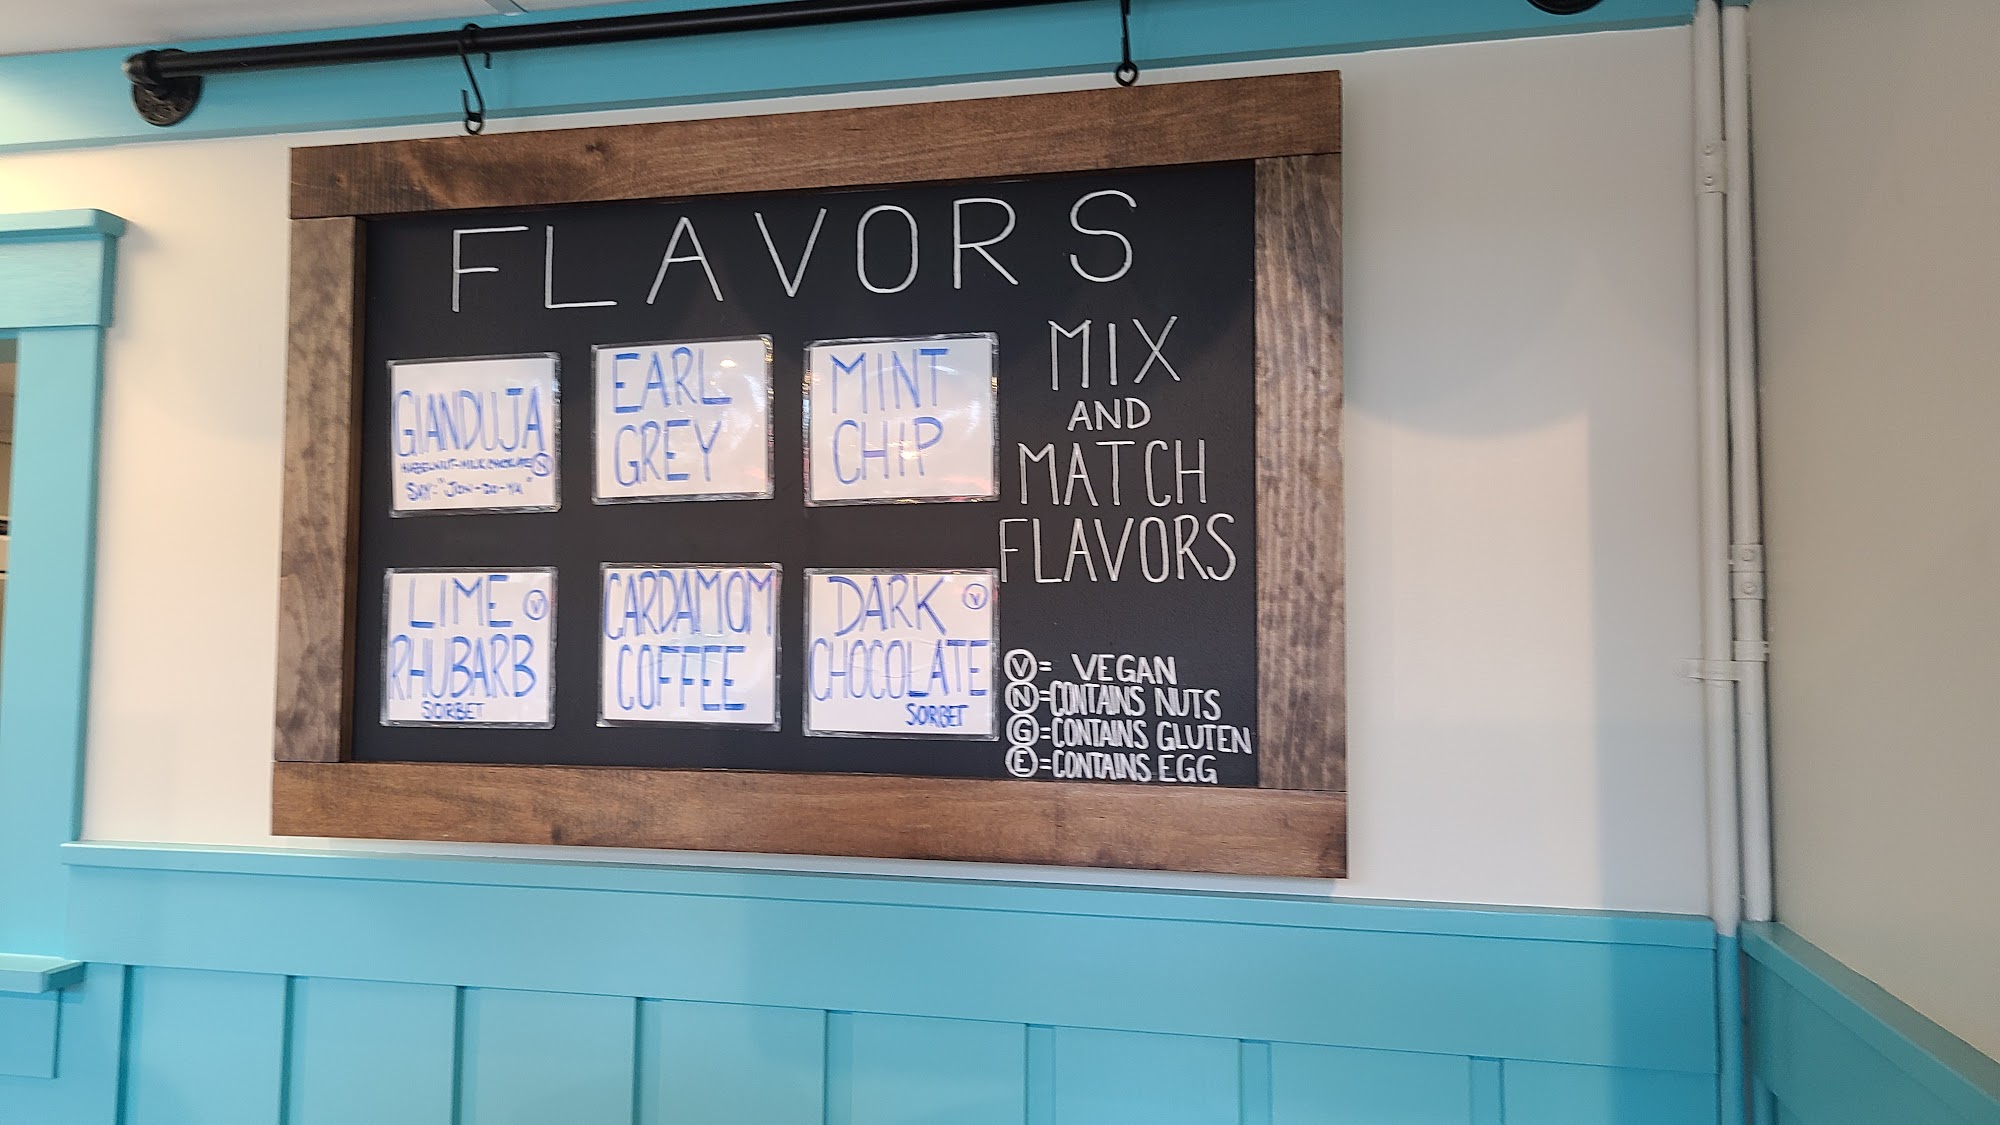 FLAVORS
GIANDUJA
HAZELNUT-MILK CHOCOLATE N
SAY: "JON-DO-YA"
EARL
GREY
MINT
CHIP
MIX
AND
MATCH
FLAVORS
LIME V
RHUBARB
SORBET
CARDAMOM
COFFEE
DARK V
CHOCOLATE
SORBET
V = VEGAN
N = CONTAINS NUTS
G = CONTAINS GLUTEN
E = CONTAINS EGG